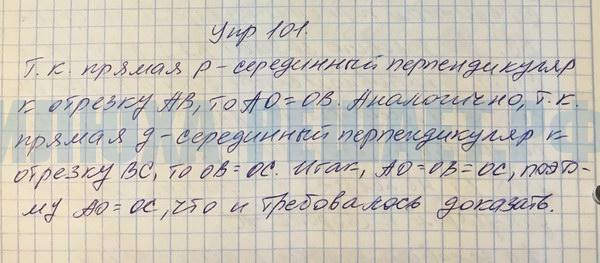 Упр 101.
Т.к. прямая p - серединный перпендикуляр
к отрезку AB, то AO=OB. Аналогично, т.к.
прямая g - серединный перпендикуляр к
отрезку BC, то OB=OC. Итак, AO=OB=OC, поэто-
му AO=OC, что и требовалось доказать.